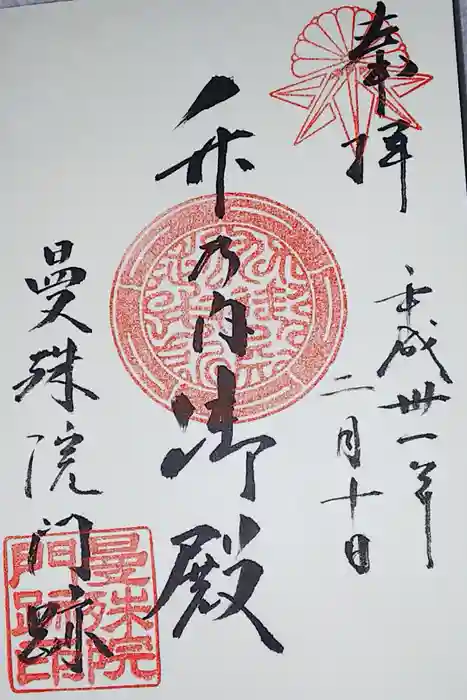 奉拝
平成卅一年
二月十日
竹乃内御殿
曼殊院門跡
曼殊院
門跡印